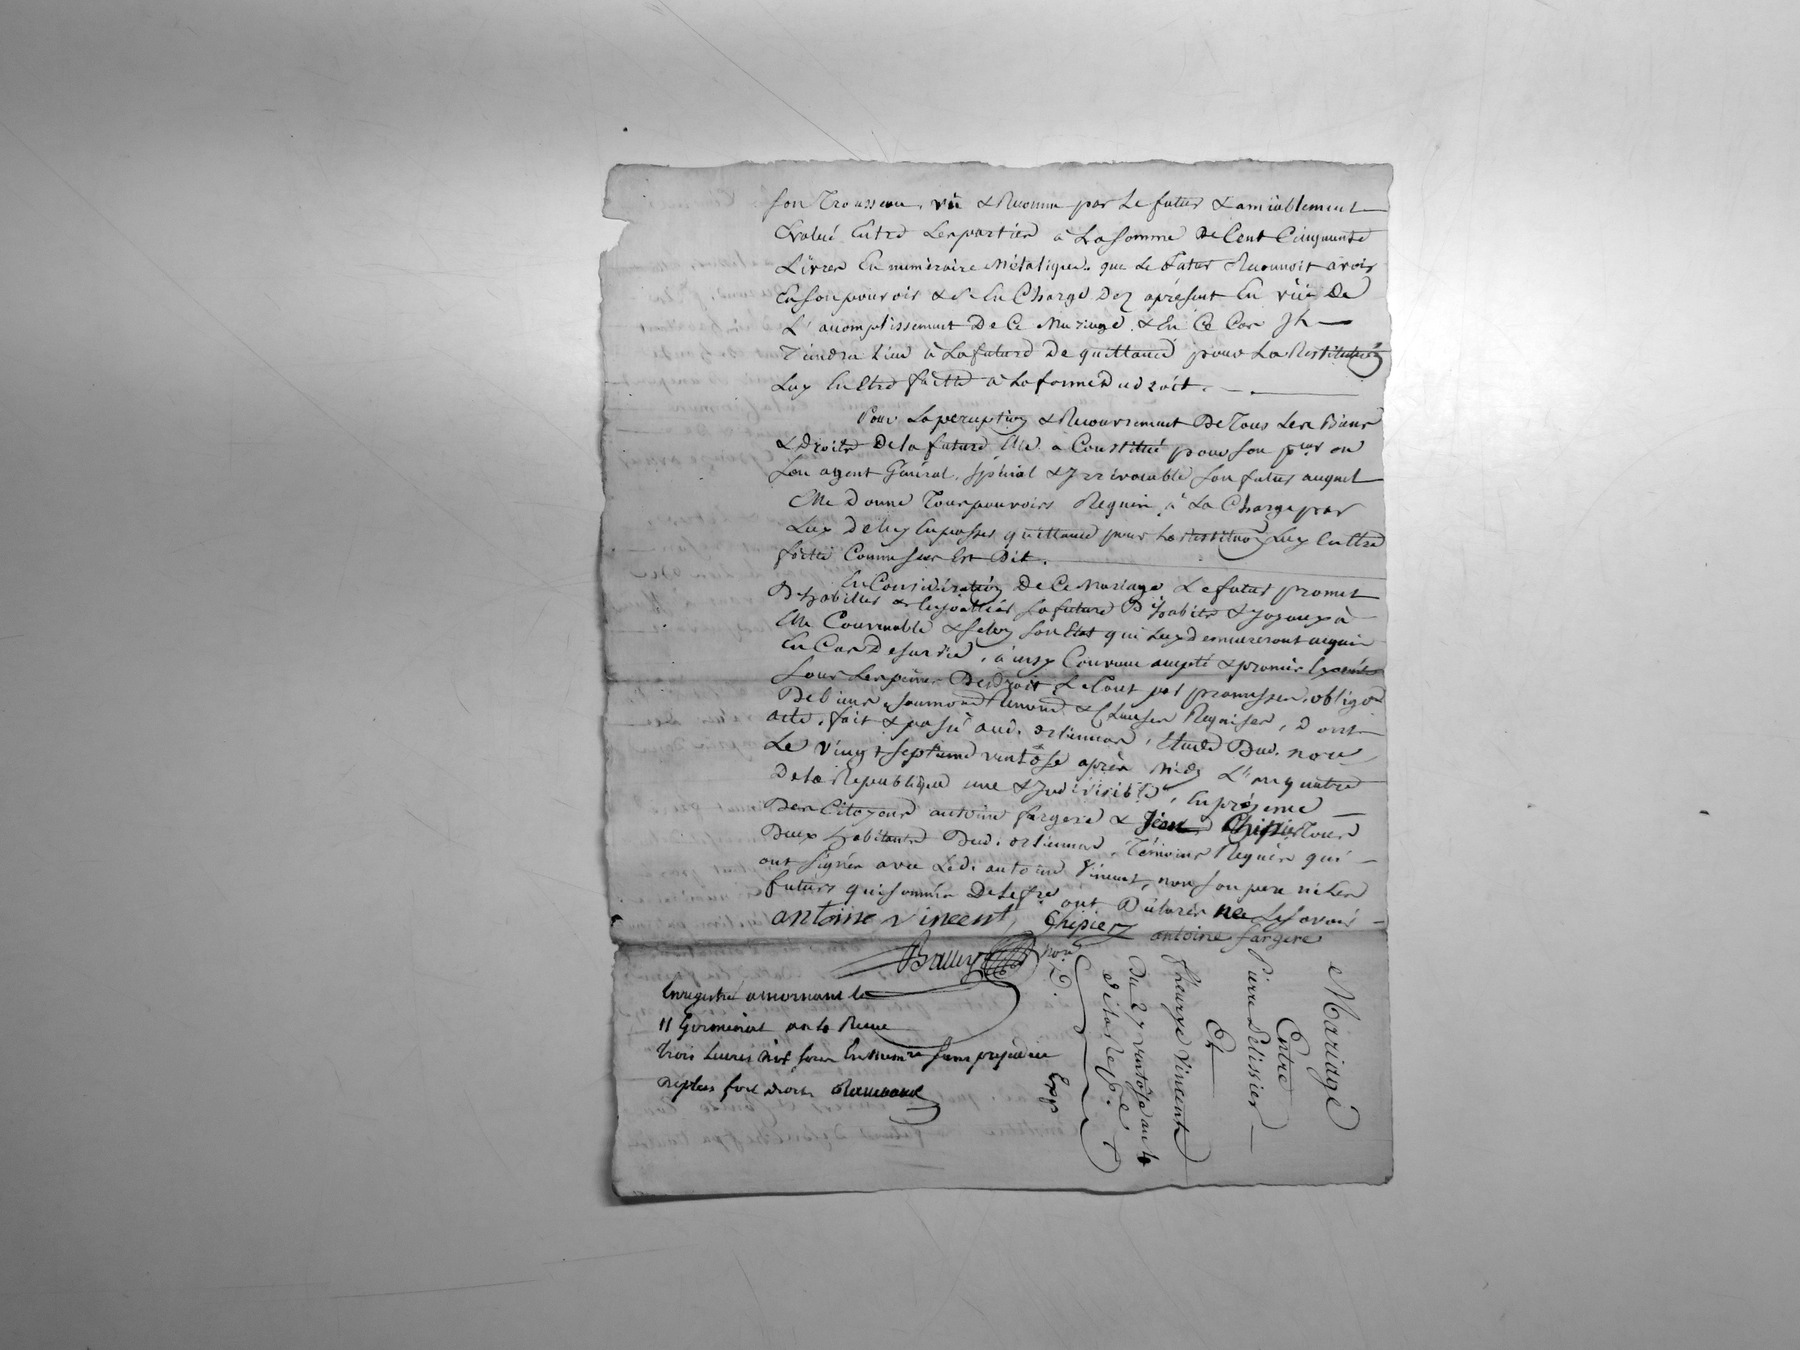 son Trousseau, vü & Reconnu par Le futur & amiablement
Evalué Entre Les parties à La somme De Cent Cinquante
Livres En numéraire Métalique. que Le futur Reconnoit avoir
En son pouvoir & s'En Charge Dez aprésent En vüe De
L'accomplissement De Ce Mariage. & En Ce Cas
Tiendra Lieu à La future De quittance pour La Restitution
Luy En Etre faitte à La forme Du droit.
Pour La perception & Recouvrement De Tous Les Biens
& Droits De la future Elle a Constitué pour son pcur ou
son agent Général, spécial & Irrévocable son futur auquel
Elle Donne Tous pouvoirs Requis, à La Charge par
Luy De luy En passer quittance pour La Restituon Luy En Etre
faitte Comme sus Est Dit.
En Considération De Ce Mariage Le futur promet
D'habiller & Enjoalliér La future D'habits & Joyaux à
Elle Convenable & selon son Etat qui Luy Demeureront acquis
En Cas De survie, ainsy Convenu accepté & promis
sous Les peines De Droit, Le Tout par promesses, obligon
De biens, soumons Renons & Clauses Requises, Dont
acte. fait & passé aud. orliennas, Etude Dud. nore
Le vingt septieme ventôse après Midy L'an quatre
De la Republique une & Indivisible, En présence
Des Citoyens antoine fargere & Jean Chipier Tous
Deux habitants Dud. orliennas, Témoins Requis qui
ont signés avec Led. antoine Vincent, non son pere ni Les
futurs qui sommés De Le fre ont Déclarés ne Le savoir
antoine vincent, Chipier
antoine fargere
nore
Enregistré a mornant le
11 Germinal an 4 Recu
trois Livres sans prejudice
Mariage
Entre
Pierre Pelissier
Et
Vincent
Du 27 ventose an 4
De la Rep.e
Exp